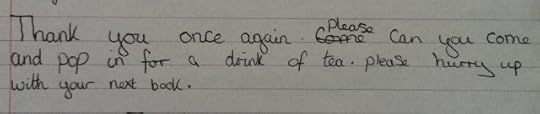 Thank you once again. please Can you come
and pop in for a drink of tea. please hurry up
with your next book.